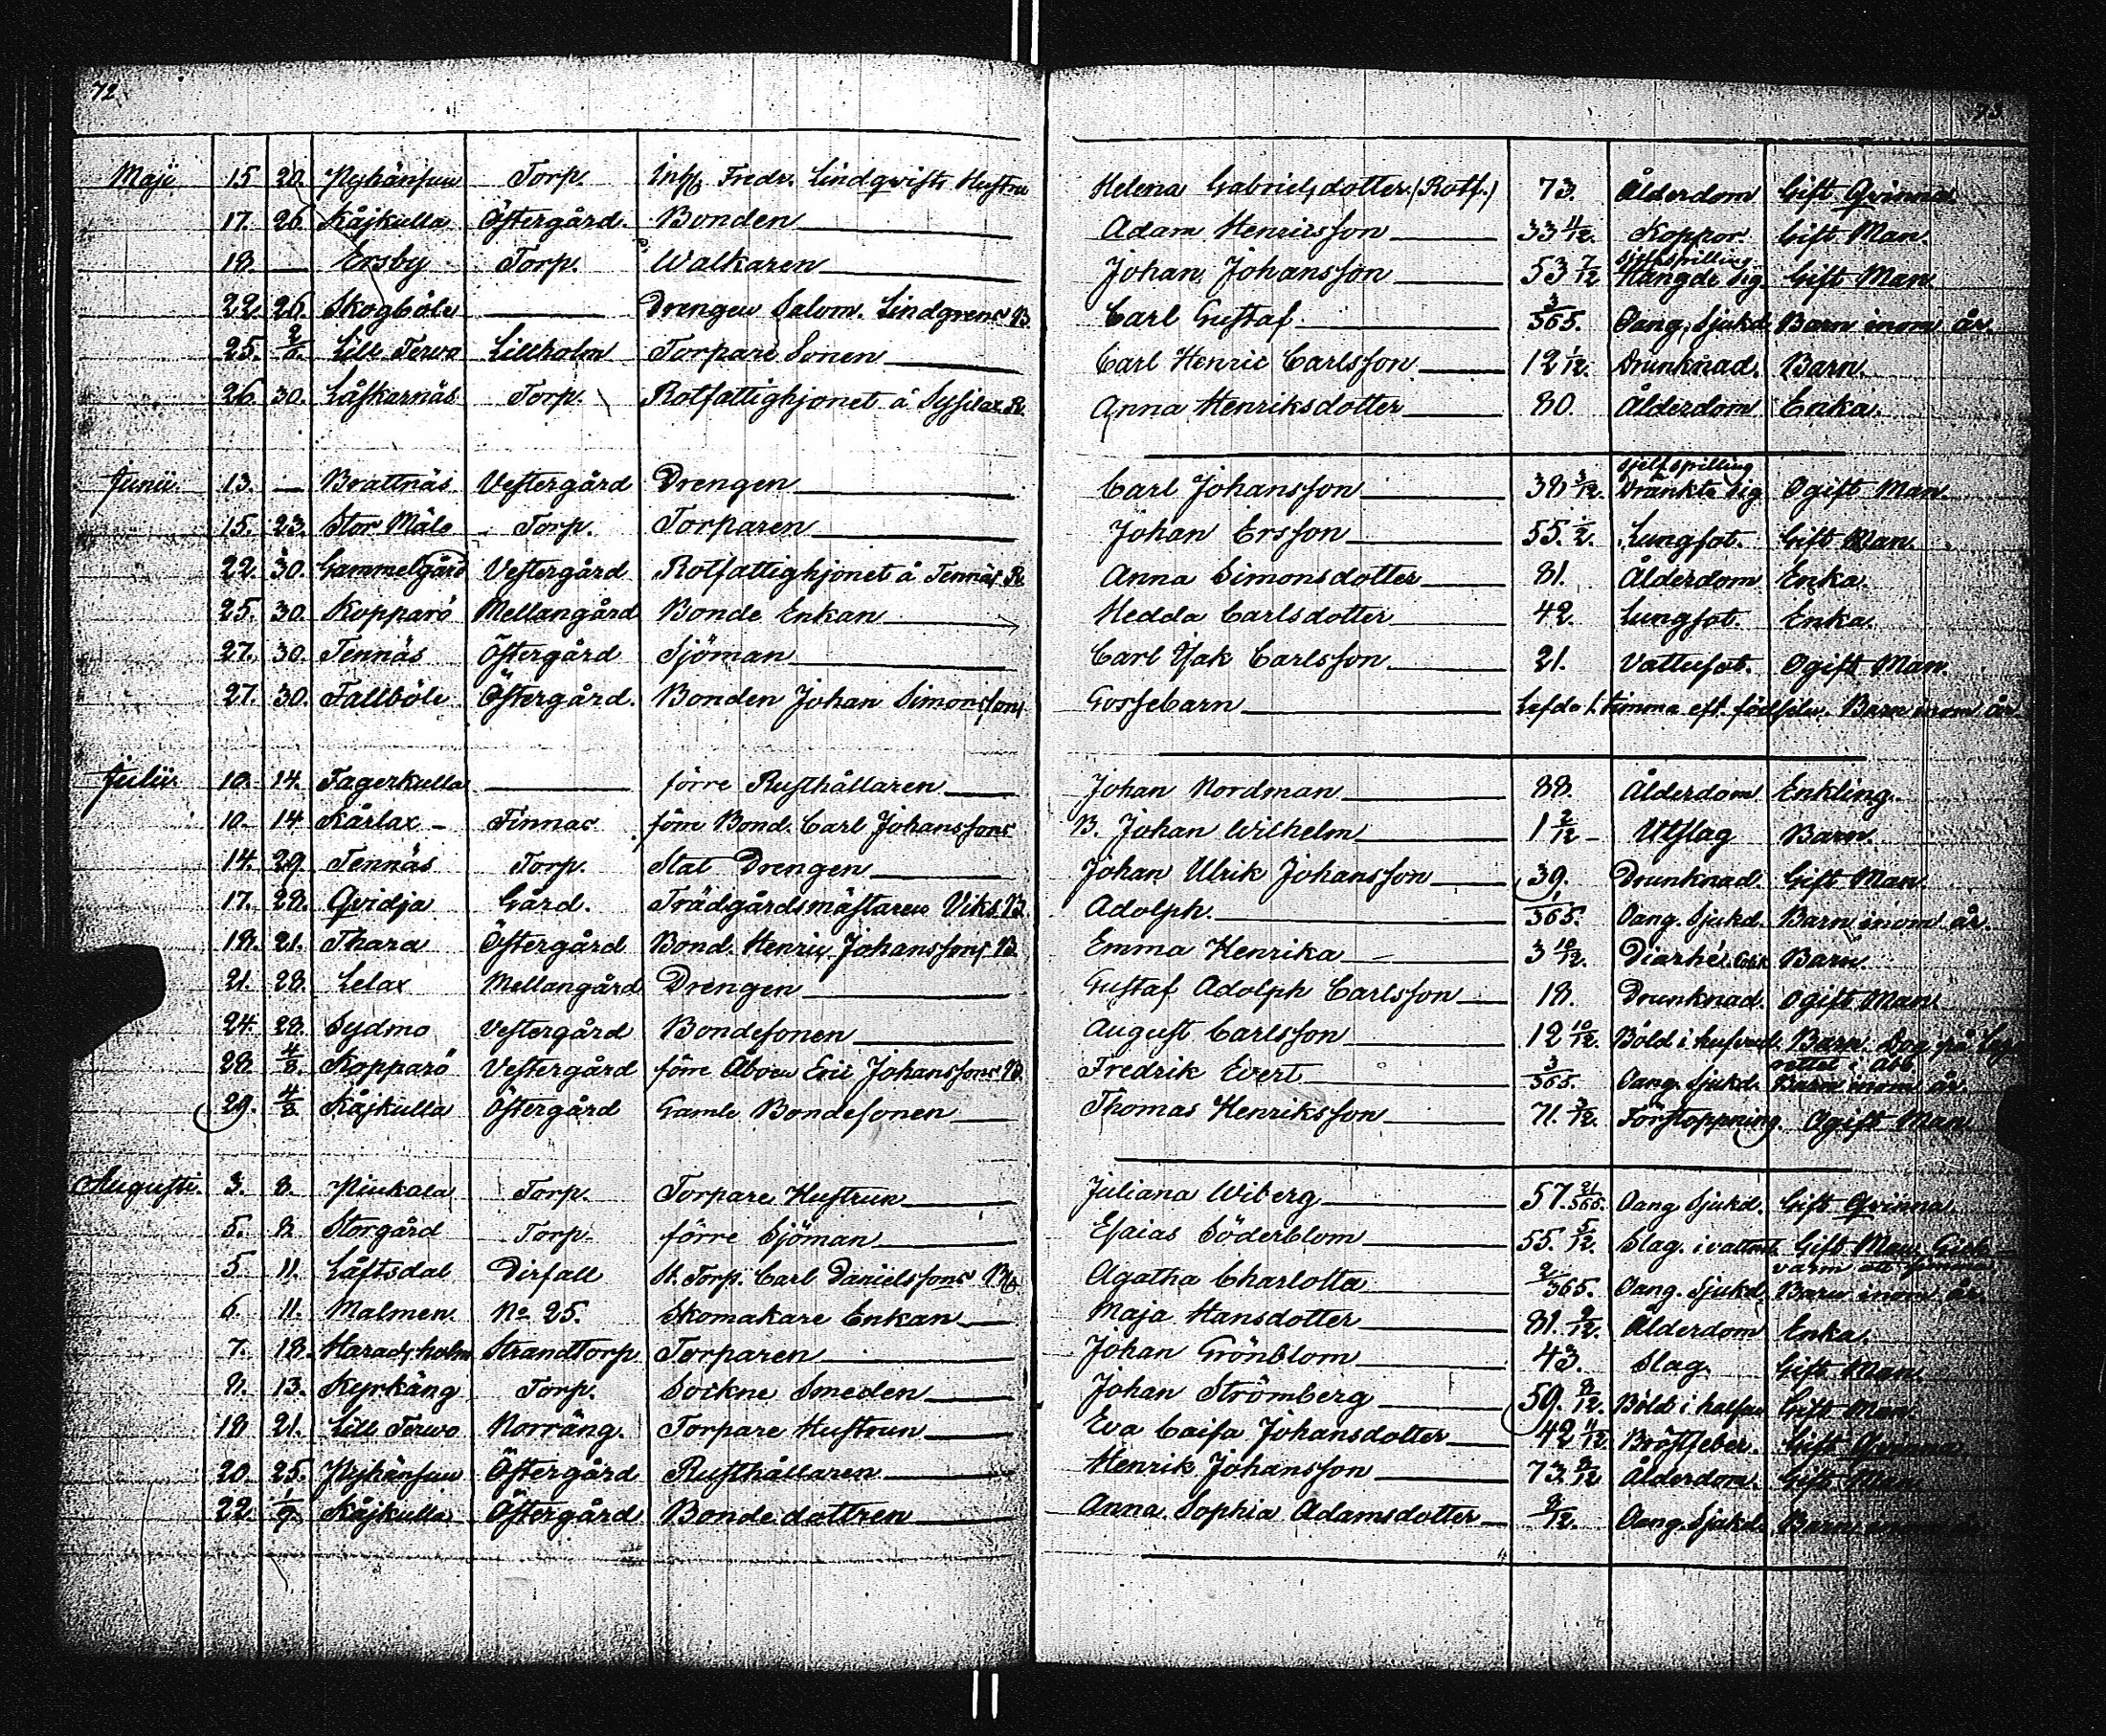 72
73
Maji 15 20. Nyhänsuu Torp. Inh. Fredr. Lindqvists Hustru Helena Gabrielsdotter (Rotf.) 73. Ålderdom Gift Qvinna.
17. 26. Kåjkulla Östergård. Bonden Adam Henricsson 33 11/12. Koppor. Gift Man.
18. — Ersby Torp. Walkaren Johan Johansson 53 7/12 sjelfspilling Hängde sig Gift Man
22. 26. Skogböle — Drengen Salom. Lindgrens B. Carl Gustaf 3/365. Oang. Sjukd. Barn inom år.
25. 2/6. Lill Terwo Lillholm Torpare Sonen Carl Henric Carlsson 12 1/12. Drunknad. Barn.
26. 30. Låskarnäs Torp. Rotfattighjonet å Sysilax R. Anna Henriksdotter 80. Ålderdom Enka.
Junii. 13. — Brattnäs Vestergård Drengen Carl Johansson 38 3/12. sjelfspilling Dränkte sig Ogift Man.
15. 23. Stor Mälo Torp. Torparen Johan Ersson 55. 1/2. Lungsot. Gift Man.
22. 30. Gammelgård Vestergård Rotfattighjonet å Tennäs R. Anna Simonsdotter 81. Ålderdom Enka.
25. 30. Kopparö Mellangård Bonde Enkan Hedda Carlsdotter 42. Lungsot. Enka.
27. 30. Tennäs Östergård Sjöman Carl Isak Carlsson 21. Vattusot. Ogift Man.
27. 30. Fallböle Östergård. Bonden Johan Simonssons Gossebarn Lefde 1. timma eft. födseln. Barn inom år.
Julii. 10. 14. Fagerkulla — förre Rusthållaren Johan Nordman 88. Ålderdom Enkling.
10. 14 Kårlax Finnas före Bond. Carl Johanssons B. Johan Wilhelm 1 2/12 Utslag Barn.
14. 29. Tennäs Torp. Stat Drengen Johan Ulrik Johansson 39. Drunknad. Gift Man.
17. 28. Qvidja Gård. Trädgårdsmästaren Viks B. Adolph. 1/365. Oang. Sjukd. Barn inom år.
18. 21. Thara Östergård Bond. Henric Johanssons B. Emma Henrika 3 10/12. Diarhé Barn.
21. 28. Lelax Mellangård Drengen Gustaf Adolph Carlsson 18. Drunknad. Ogift Man
24. 28. Sydmo Vestergård Bondesonen August Carlsson 12 10/12. Böld i hufvud. Barn. Dog på
28 4/8. Kopparö Vestergård före Åbon Eric Johanssons B. Fredrik Evert 3/365. Oang. Sjukd. Barn inom år
29. 4/8. Kåjkulla Östergård Gamle Bondesonen Thomas Henriksson 71. 3/12. Förstoppning. Ogift Man
Augusti. 3. 8. Piukala Torp. Torpare Hustrun Juliana Wiberg 57. 21/365. Oang Sjukd. Gift Qvinna.
5. 8. Storgård Torp. förre Sjöman Esaias Söderblom 55. 5/12. Slag. i vattnet Gift Man. Gick varm att simma
5. 11. Låftsdal Dirfall St. Torp. Carl Danielssons B. Agatha Charlotta 2/365. Oang. Sjukd. Barn inom år.
6. 11. Malmen. No 25. Skomakare Enkan Maja Hansdotter 81. 9/12. Ålderdom Enka.
7. 18. Haradsholm Strandtorp Torparen Johan Grönblom 43. Slag. Gift Man.
8. 13. Kyrkäng Torp. Sockne Smeden Johan Strömberg 59. 8/12. Böld i halsen Gift Man.
18 21. Lill Terwo Norräng. Torpare Hustrun Eva Caisa Johansdotter 42 11/12. Bröstfeber. Gift Qvinna
20. 25. Nyhänsuu Östergård Rusthållaren Henrik Johansson 73 8/12 Ålderdom. Gift Man
22. 1/9. Kåjkulla Östergård Bondedottren Anna Sophia Adamsdotter 9/12. Oang. Sjukd. Barn